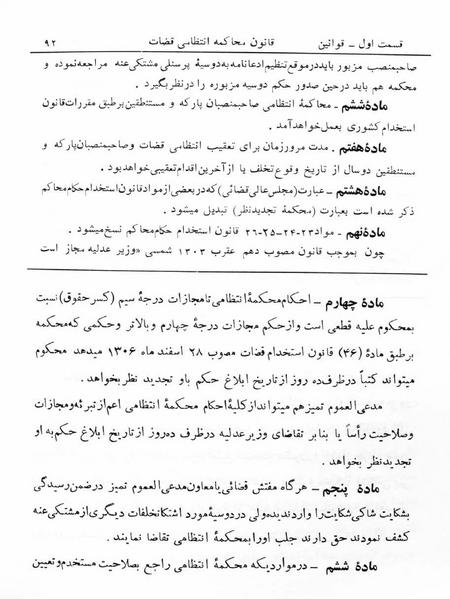 قسمت اول ـ قوانین قانون محاکمه انتظامی قضات ۹۲
صاحبمنصب مزبور باید در موقع تنظیم ادعانامه به دوسیهٔ پرسنلی مشتکی‌عنه مراجعه نموده و
محکمه هم باید در حین صدور حکم دوسیه مزبوره را در نظر بگیرد .
مادهٔ ششم ـ محاکمهٔ انتظامی صاحبمنصبان پارکه و مستنطقین برطبق مقررات قانون
استخدام کشوری بعمل خواهد آمد .
مادهٔ هفتم . مدت مرور زمان برای تعقیب انتظامی قضات و صاحبمنصبان پارکه و
مستنطقین دو سال از تاریخ وقوع تخلف یا از آخرین اقدام تعقیبی خواهد بود .
مادهٔ هشتم ـ عبارت (مجلس عالی قضائی) که در بعضی از مواد قانون استخدام حکام محاکم
ذکر شده است بعبارت (محکمهٔ تجدیدنظر) تبدیل میشود .
مادهٔ نهم ـ مواد ۲۳-۲۴-۲۵-۲۶ قانون استخدام حکام محاکم نسخ میشود .
چون بموجب قانون مصوب دهم عقرب ۱۳۰۳ شمسی «وزیر عدلیه مجاز است
مادهٔ چهارم ـ احکام محکمهٔ انتظامی تا مجازات درجهٔ سیم (کسر حقوق) نسبت
بمحکوم علیه قطعی است و از حکم مجازات درجهٔ چهارم و بالاتر و حکمی که محکمه
برطبق مادهٔ (۴۶) قانون استخدام قضات مصوب ۲۸ اسفند ماه ۱۳۰۶ میدهد محکوم
میتواند کتباً در ظرف ده روز از تاریخ ابلاغ حکم باو تجدید نظر بخواهد .
مدعی‌العموم تمیز هم میتواند از کلیهٔ احکام محکمهٔ انتظامی اعم از تبرئه و مجازات
و صلاحیت رأساً یا بنا بر تقاضای وزیر عدلیه در ظرف ده روز از تاریخ ابلاغ حکم به او
تجدید نظر بخواهد .
مادهٔ پنجم ـ هرگاه مفتش قضائی یا معاون مدعی العموم تمیز در ضمن رسیدگی
بشکایت شاکی شکایت را وارد ندیده ولی در دوسیهٔ مورد اشتکا تخلفات دیگری از مشتکی‌عنه
کشف نمودند حق دارند جلب او را بمحکمهٔ انتظامی تقاضا نمایند .
مادهٔ ششم ـ در مواردیکه محکمهٔ انتظامی راجع بصلاحیت مستخدم و تعیین